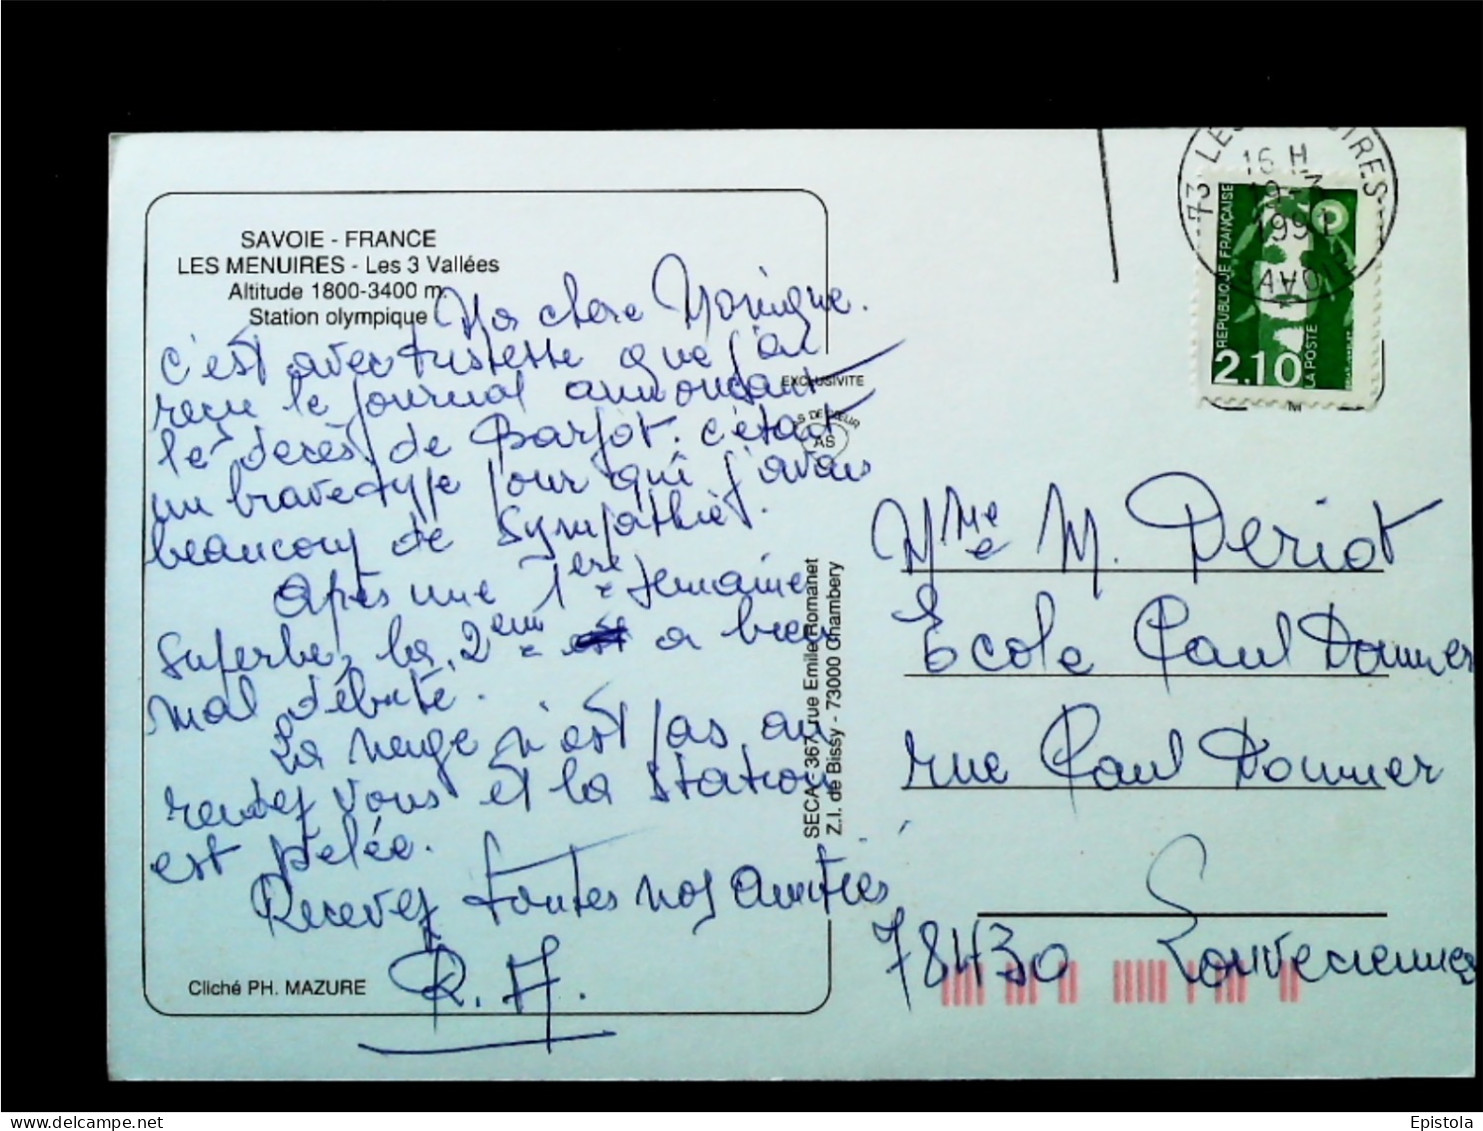 SAVOIE - FRANCE
LES MENUIRES - Les 3 Vallées
Altitude 1800-3400 m.
Station olympique
Ma chère Monique.
c'est avec tristesse que j'ai
reçu le journal annonçant
le décès de Barjot. c'était
un brave type pour qui j'avais
beaucoup de sympathie.
Après une 1ère semaine
superbe, la 2ème a bien
mal débuté.
La neige n'est pas au
rendez vous et la station
est pelée.
Recevez toutes nos amitiés
R. A.
Cliché PH. MAZURE
EXCLUSIVITE
AS
SECA - 367, rue Emile Romanet
Z.I. de Bissy - 73000 Chambery
73 LES MENUIRES
16 H
19-3
1991
SAVOIE
REPUBLIQUE FRANÇAISE
2.10
LA POSTE
Mme M. Deriot
Ecole Paul Doumer
rue Paul Doumer
78430 Louveciennes
delcampe.net
Epistola